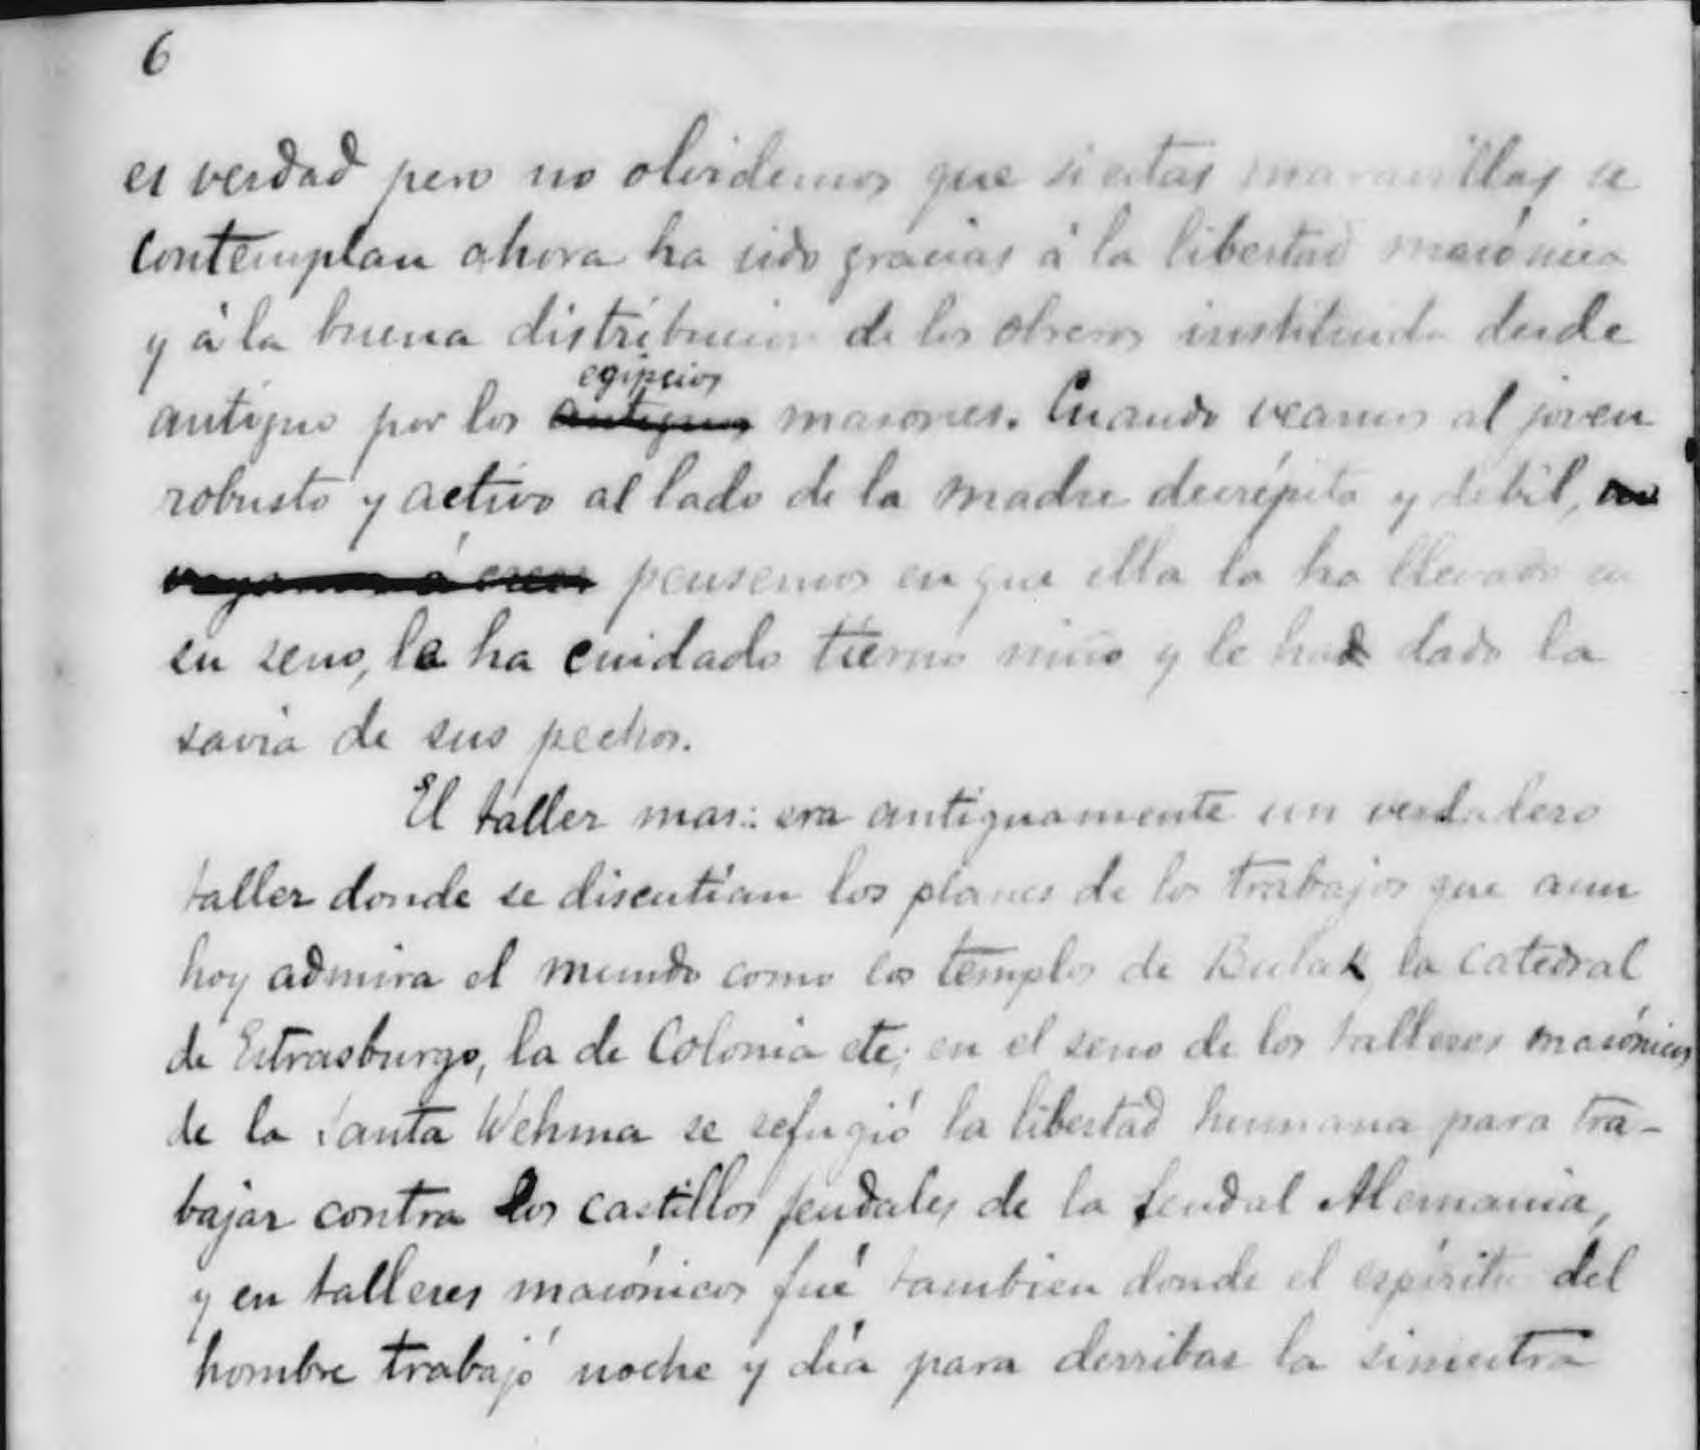 6
es verdad pero no olvidemos que si estas maravillas se
contemplan ahora ha sido gracias á la libertad masónica
y á la buena distribucion de los obreros instituida desde
egipcios
antiguo por los antiguos masones. Cuando veamos al joven
robusto y activo al lado de la madre decrépita y debil, no
vayamos á creer pensemos en que ella lo ha llevado en
su seno, le ha cuidado tierno niño y le ha dado la
savia de sus pechos.
El taller mas∴ era antiguamente un verdadero
taller donde se discutían los planes de los trabajos que aun
hoy admira el mundo como los templos de Bulak, la catedral
de Estrasburgo, la de Colonia etc; en el seno de los talleres masónicos
de la Santa Wehma se refugió la libertad humana para tra-
bajar contra los castillos feudales de la feudal Alemania,
y en talleres masónicos fué tambien donde el espíritu del
hombre trabajó noche y día para derribar la siniestra